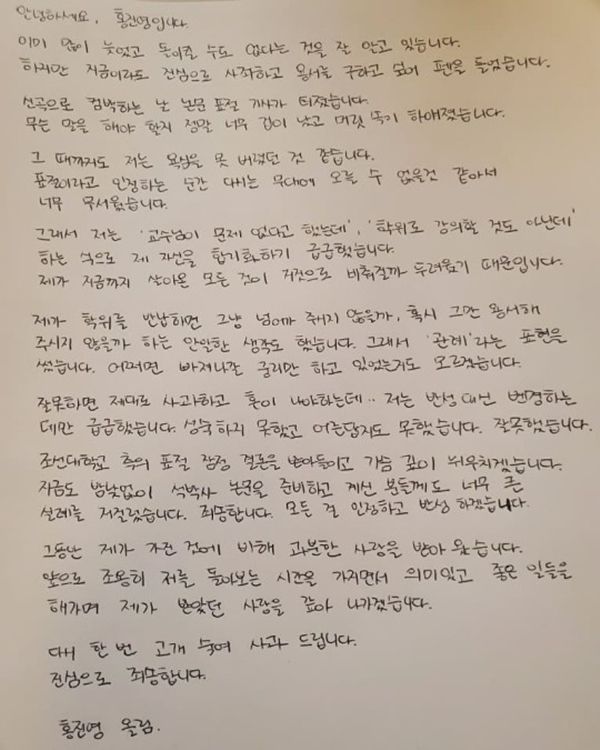 안녕하세요, 홍진영입니다.
이미 많이 늦었고 돌이킬 수도 없다는 것을 잘 안고 있습니다.
하지만 지금이라도 진심으로 사죄하고 용서를 구하고 싶어 펜을 들었습니다.
신곡으로 컴백하는 날 논문 표절 기사가 터졌습니다.
무슨 말을 해야 할지 정말 너무 겁이 났고 머릿 속이 하애졌습니다.
그 때까지도 저는 욕심을 못 버렸던 것 같습니다.
표절이라고 인정하는 순간 다시는 무대에 오를 수 없을것 같아서
너무 무서웠습니다.
그래서 저는 '교수님이 문제 없다고 했는데', '학위로 강의할 것도 아닌데'
하는 식으로 제 자신을 합리화하기 급급했습니다.
제가 지금까지 살아온 모든 것이 거짓으로 비춰질까 두려웠기 때문입니다.
제가 학위를 반납하면 그냥 넘어가 주시지 않을까, 혹시 그만 용서해
주시지 않을까 하는 안일한 생각도 했습니다. 그래서 '관례'라는 표현을
썼습니다. 어쩌면 빠져나갈 궁리만 하고 있었는지도 모르겠습니다.
잘못하면 제대로 사과하고 혼이 나야하는데.. 저는 반성 대신 변명하는
데만 급급했습니다. 성숙하지 못했고 어른답지도 못했습니다. 잘못했습니다.
조선대학교 측의 표절 잠정 결론을 받아들이고 가슴 깊이 뉘우치겠습니다.
지금도 밤낮없이 석박사 논문을 준비하고 계신 분들께도 너무 큰
실례를 저질렀습니다. 죄송합니다. 모든 걸 인정하고 반성 하겠습니다.
그동안 제가 가진 것에 비해 과분한 사랑을 받아 왔습니다.
앞으로 조용히 저를 돌아보는 시간을 가지면서 의미있고 좋은 일들을
해가며 제가 받았던 사랑을 갚아 나가겠습니다.
다시 한 번 고개 숙여 사과 드립니다.
진심으로 죄송합니다.
홍진영 올림.